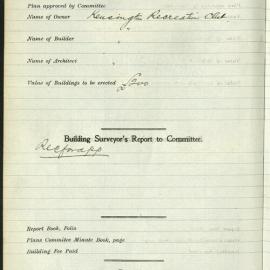 Plan approved by Committee
Name of Owner Kensington Recreation Club
Name of Builder "
Name of Architect "
Value of Buildings to be erected £200
Building Surveyor's Report to Committee.
Rec for app
Report Book, Folio
Plans Committee Minute Book, page
Building Fee Paid